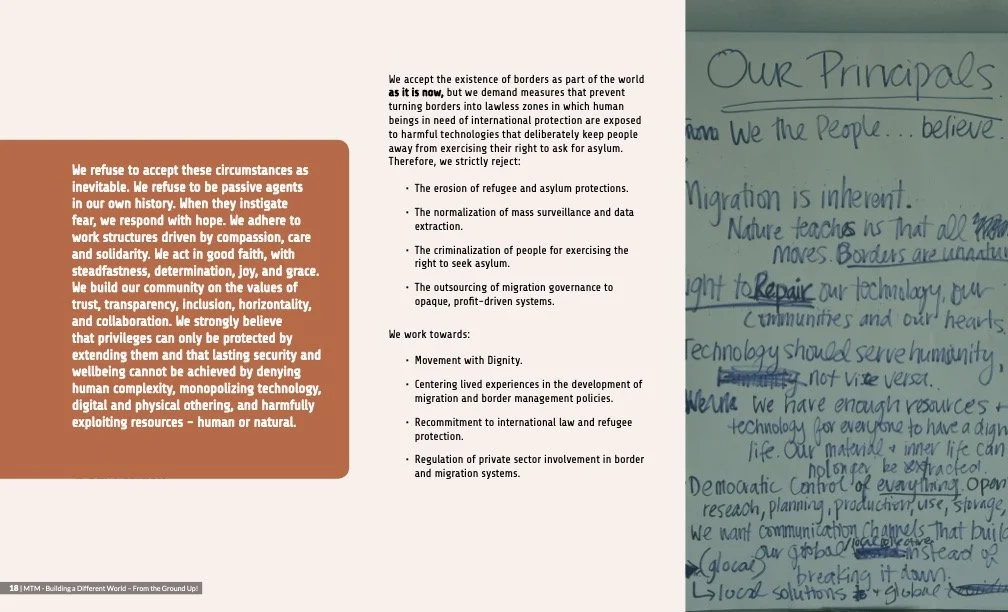 We refuse to accept these circumstances as
inevitable. We refuse to be passive agents
in our own history. When they instigate
fear, we respond with hope. We adhere to
work structures driven by compassion, care
and solidarity. We act in good faith, with
steadfastness, determination, joy, and grace.
We build our community on the values of
trust, transparency, inclusion, horizontality,
and collaboration. We strongly believe
that privileges can only be protected by
extending them and that lasting security and
wellbeing cannot be achieved by denying
human complexity, monopolizing technology,
digital and physical othering, and harmfully
exploiting resources – human or natural.
We accept the existence of borders as part of the world
as it is now, but we demand measures that prevent
turning borders into lawless zones in which human
beings in need of international protection are exposed
to harmful technologies that deliberately keep people
away from exercising their right to ask for asylum.
Therefore, we strictly reject:
• The erosion of refugee and asylum protections.
• The normalization of mass surveillance and data
extraction.
• The criminalization of people for exercising the
right to seek asylum.
• The outsourcing of migration governance to
opaque, profit-driven systems.
We work towards:
• Movement with Dignity.
• Centering lived experiences in the development of
migration and border management policies.
• Recommitment to international law and refugee
protection.
• Regulation of private sector involvement in border
and migration systems.
18 | MTM - Building a Different World – From the Ground Up!
Our Principals
We the People... believe.
Migration is inherent.
Nature teaches us that all
moves. Borders are
to Repair our technology, our
Communities and our hearts
Technology should serve humanity,
not vise versa.
We have enough resources +
technology for everyone to have a
life. Our material + inner life can
no longer be extracted.
Democratic Control of everything. Open
reseach, planning, production, use, storage,
We want communication Channels that
our global instead of
(glocal) breaking it down.
↳ local solutions + global